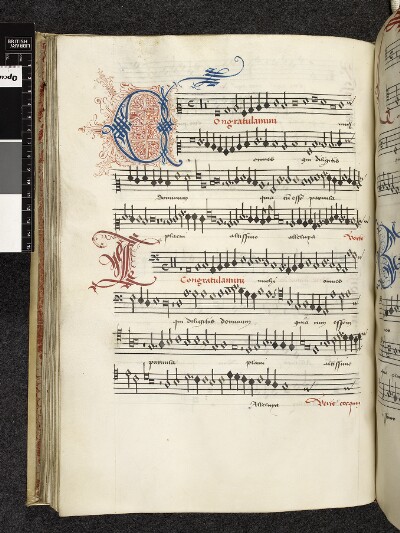 BRITISH
LIBRARY
Congratulamini michi
omnes qui diligitis
dominum quia cum essem parvula
placui altissimo alleluya Verte
Congratulamini michi omnes
qui diligitis dominum quia cum essem
parvula placui altissimo
Alleluya Verte